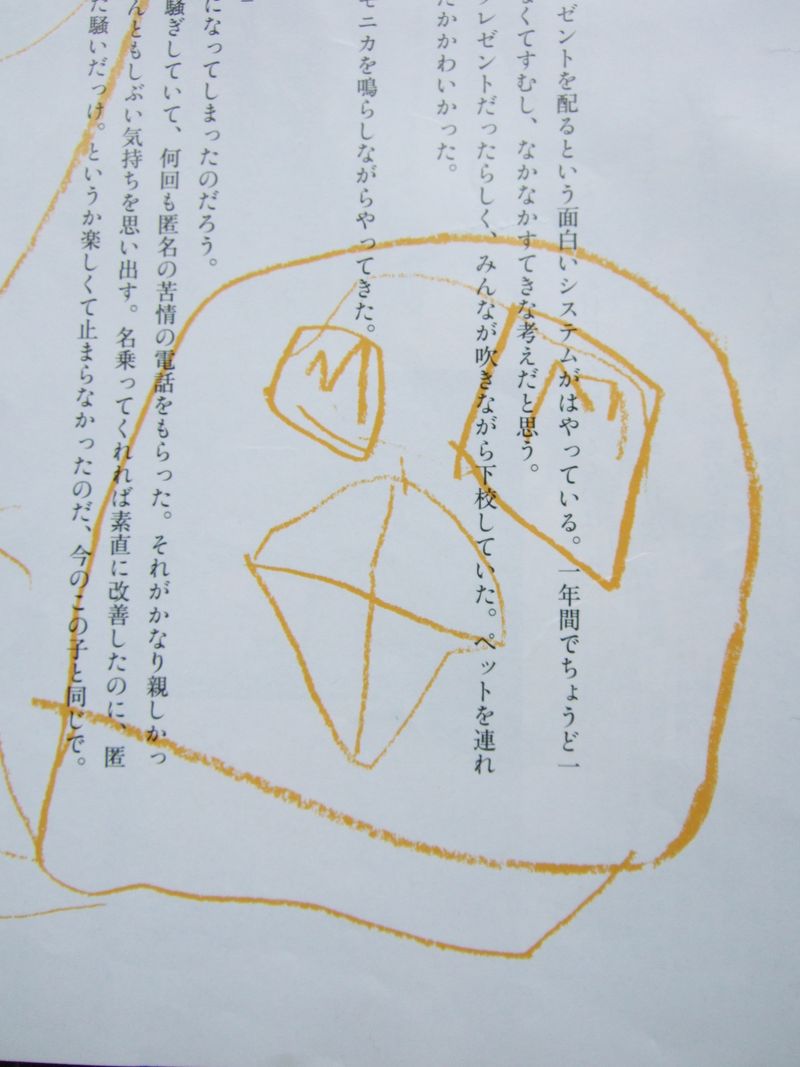 ゼントを配るという面白いシステムがはやっている。一年間でちょうど一
なくてすむし、なかなかすてきな考えだと思う。
プレゼントだったらしく、みんなが吹きながら下校していた。ペットを連れ
たかかわいかった。
モニカを鳴らしながらやってきた。
になってしまったのだろう。
騒ぎしていて、何回も匿名の苦情の電話をもらった。それがかなり親しかっ
んともしぶい気持ちを思い出す。名乗ってくれれば素直に改善したのに、匿
た騒いだっけ。というか楽しくて止まらなかったのだ、今のこの子と同じで。
M